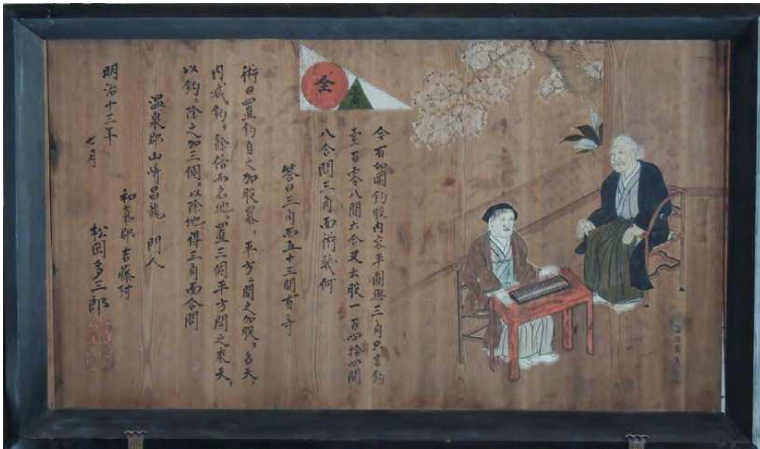 全
今有如圖釣股内容平圓與三角只言釣
壹百零八間六合又云股一百四拾四間
八合問三角面術幾何
答曰三角面五十三間有奇
術曰置釣自之加股冪、平方開之加股、名天、
内減釣、餘倍而名地、置三個平方開之乘天、
以釣除之加三個、以除地得三角面合問
温泉郡山崎昌龍 門人
和氣郡吉藤村
松岡多三郎
明治十三年
七月